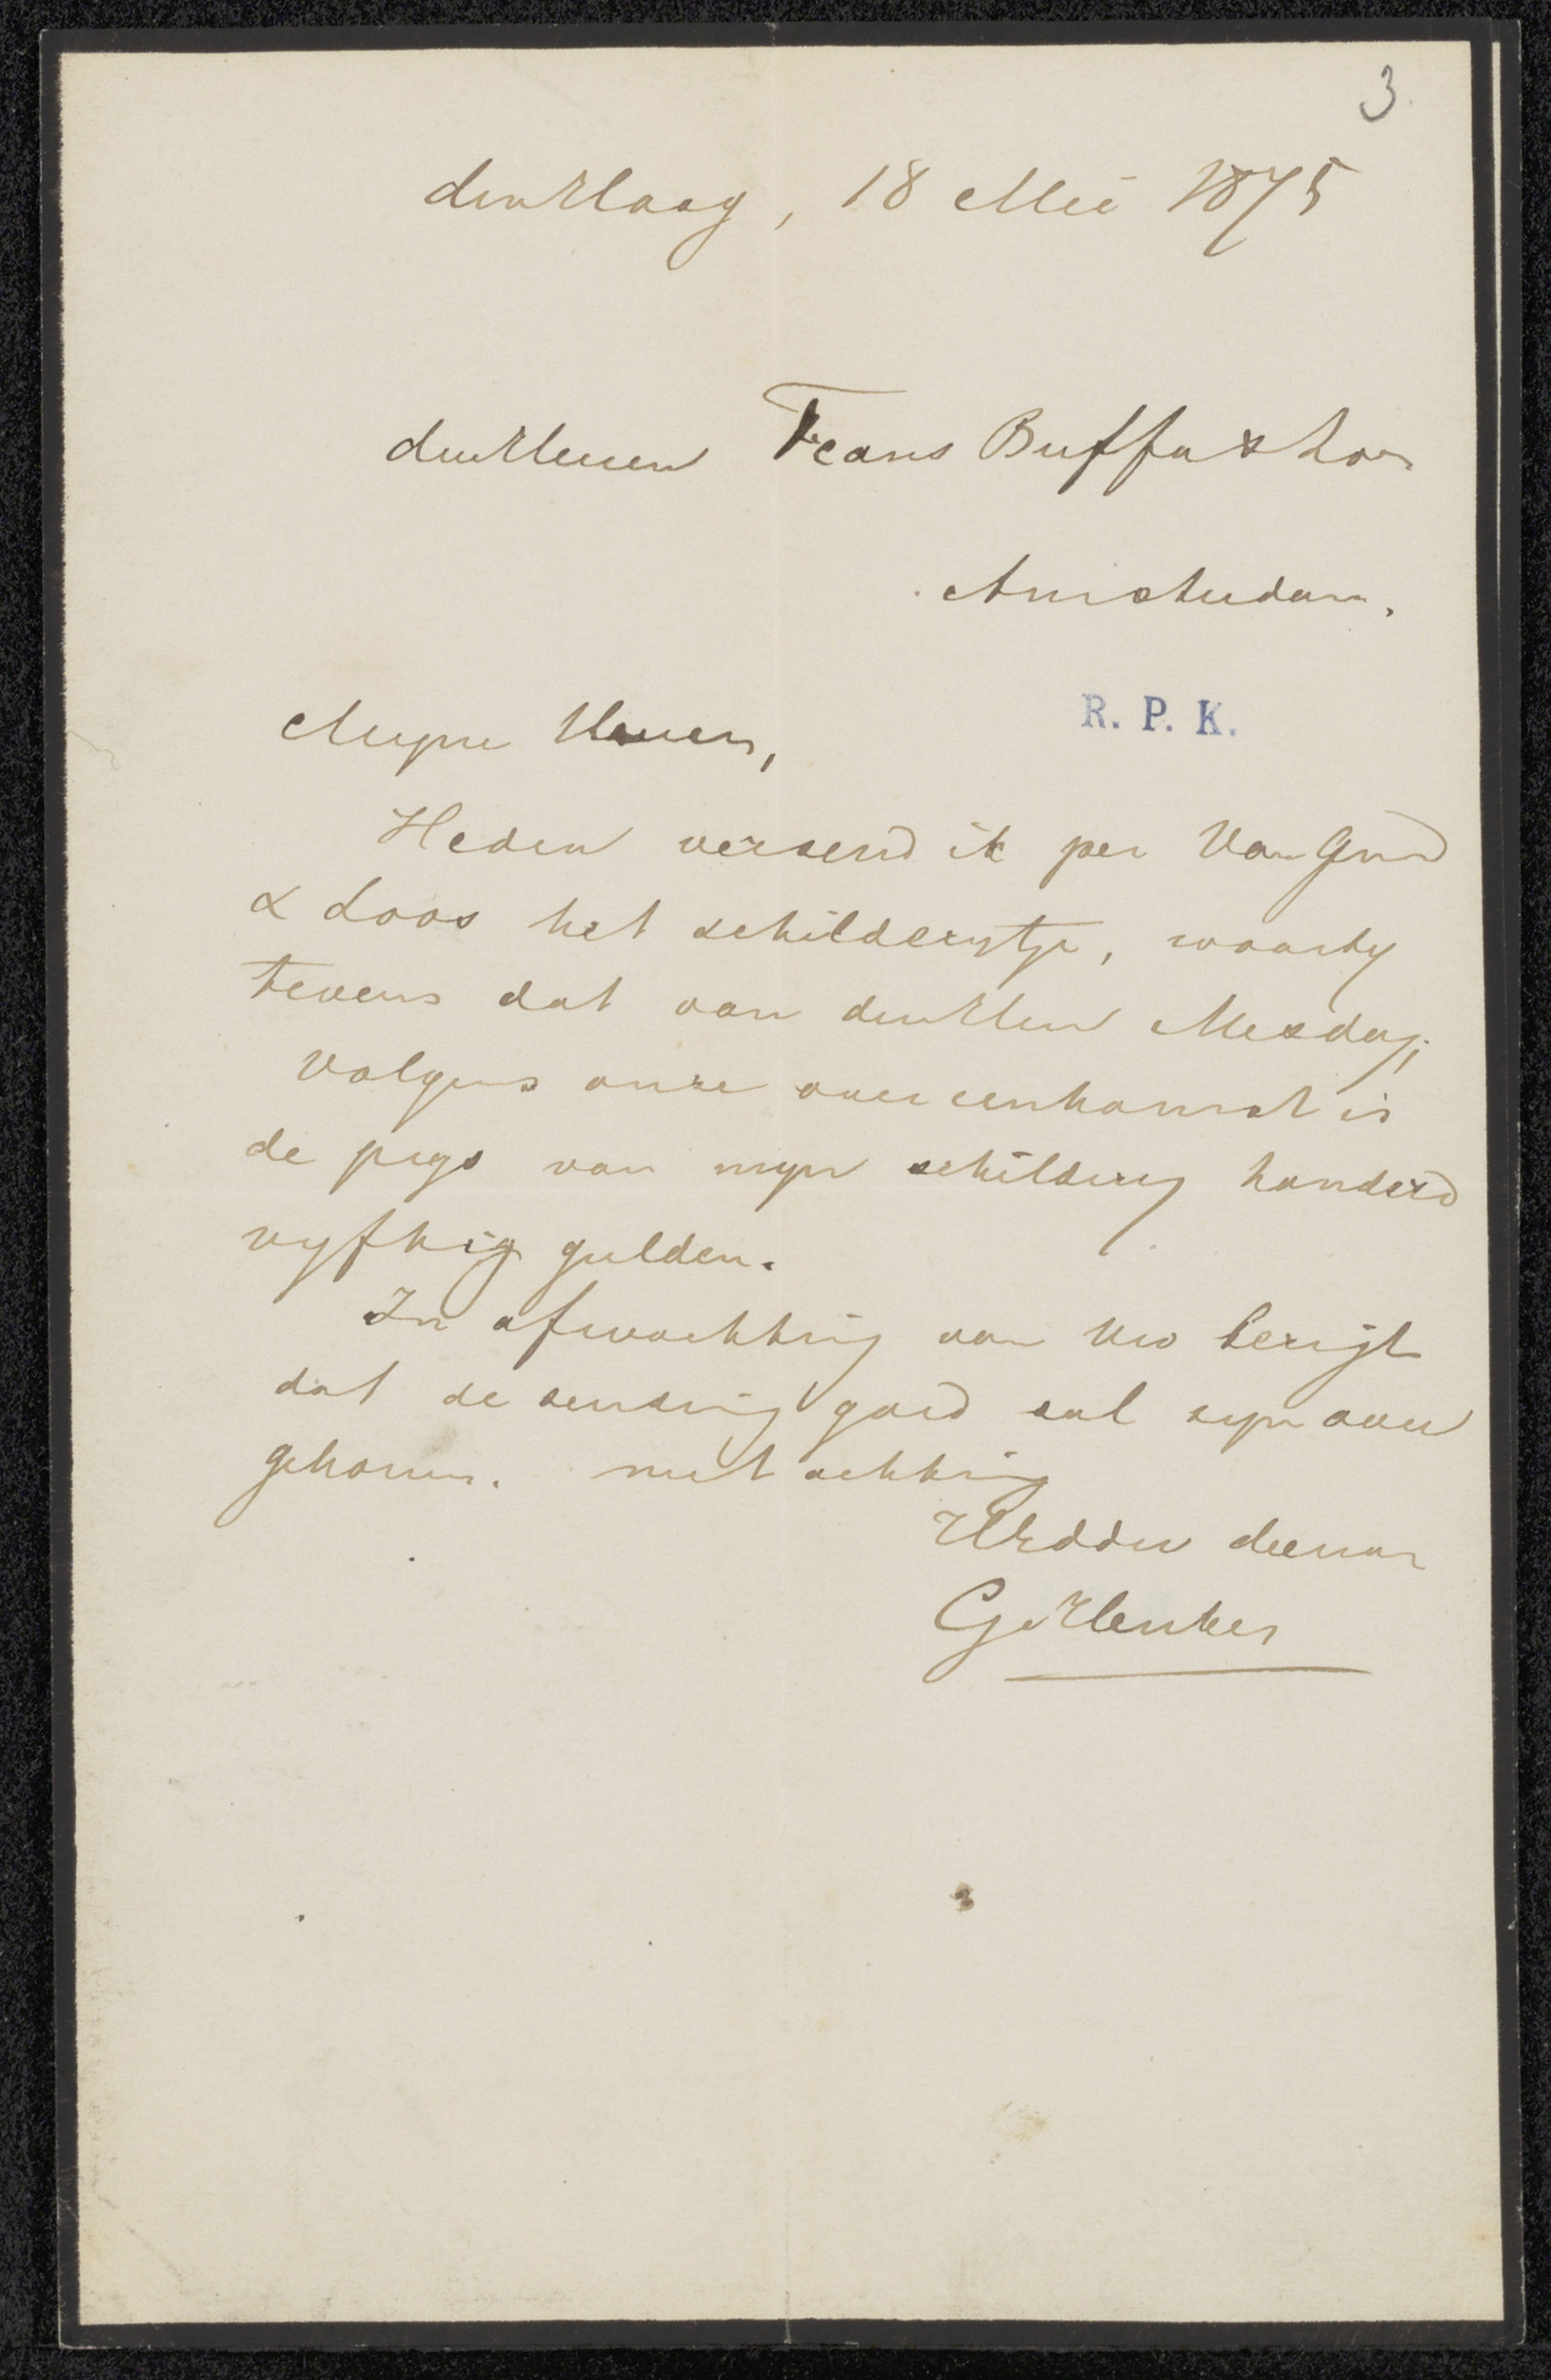 3
den Haag, 18 Mei 1875
den Heeren Frans Buffa & Zoon
Amsterdam.
R. P. K.
Mijne Heeren,
Heden verzend ik per Van Gend
& Loos het schilderytje, waarby
tevens dat van den Heer Mesdag;
Volgens onze overeenkomst is
de prys van myn schildery honderd
vyftig gulden.
In afwachting van Uw berigt
dat de zending goed zal zyn over
gekomen. met achting
UEd dw dienaar